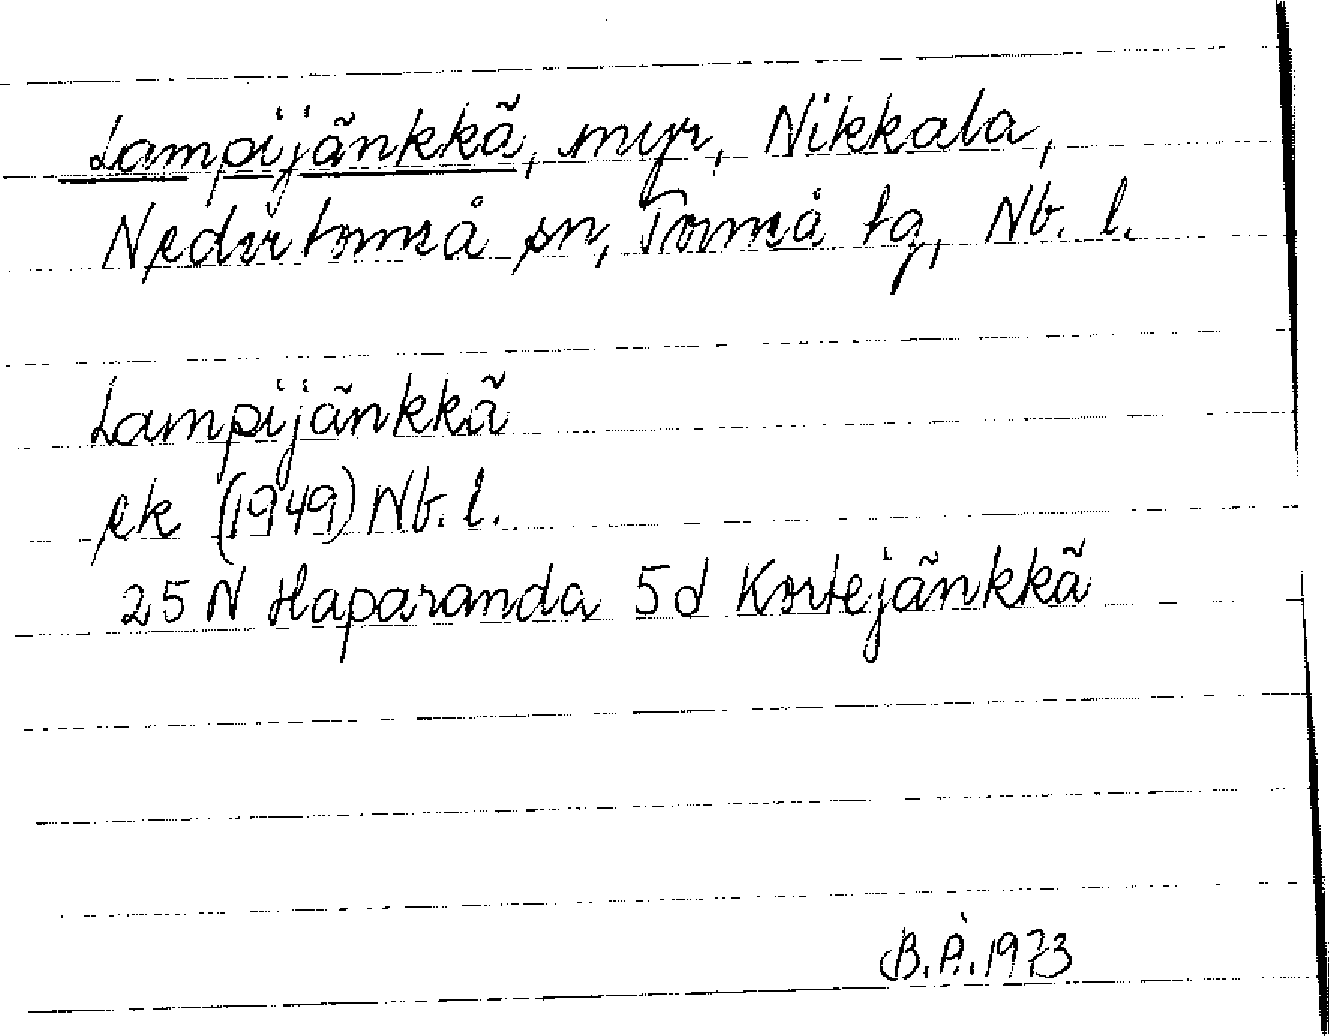 Lampijänkkä, myr, Nikkala,
Nedertorneå sn, Torneå tg, Nb. l.
Lampijänkkä
ek (1949) Nb. l.
25 N Haparanda 5d Kortejänkkä
B.Å.1973